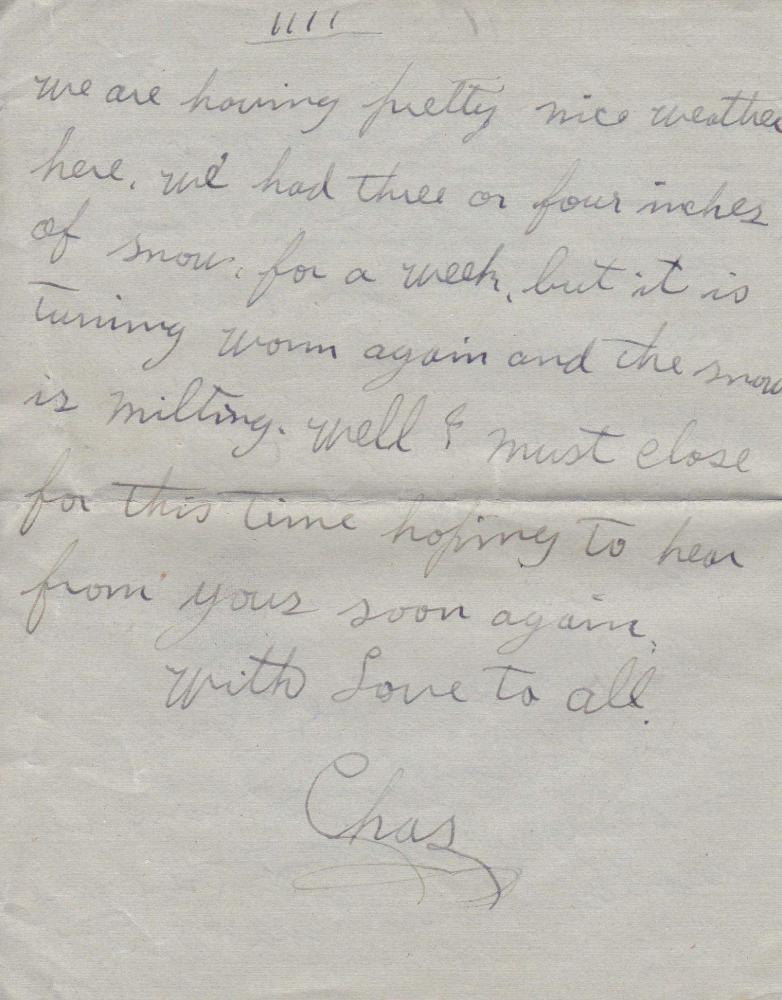 1111
we are having pretty nice weather
here, we had three or four inches
of snow, for a week, but it is
turning worm again and the snow
is milting. well I must close
for this time hoping to hear
from yous soon again,
with Love to all.
Chas